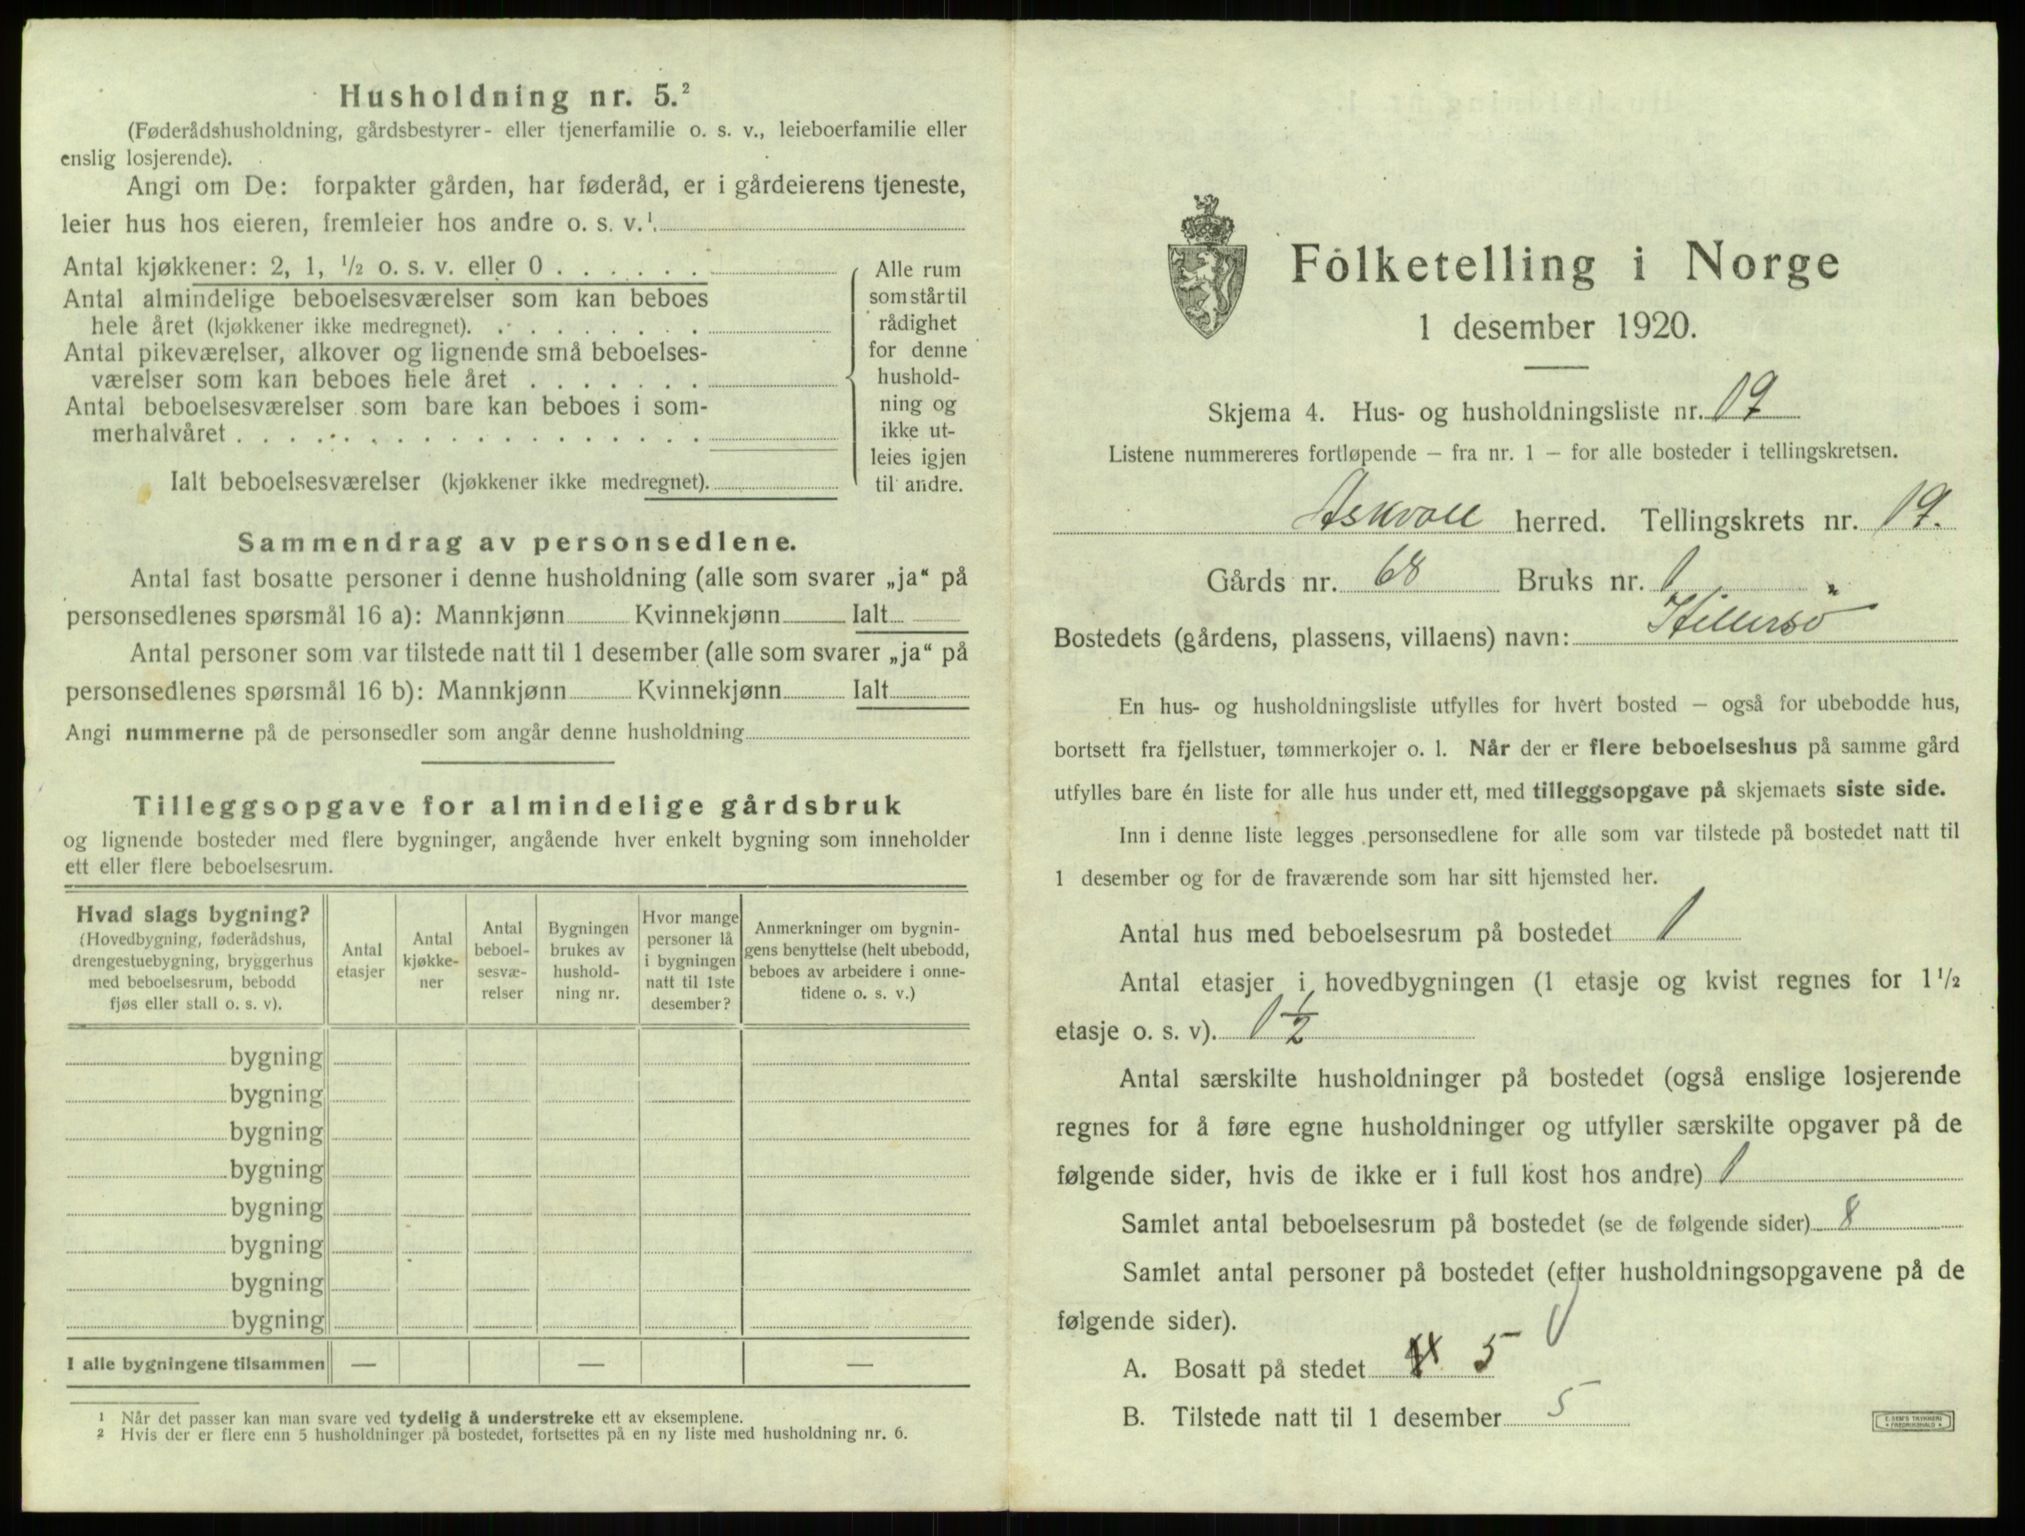 Husholdning nr. 5.²
(Føderådshusholdning, gårdsbestyrer- eller tjenerfamilie o. s. v., leieboerfamilie eller
enslig losjerende).
Angi om De: forpakter gården, har føderåd, er i gårdeierens tjeneste,
leier hus hos eieren, fremleier hos andre o. s. v.¹
Antal kjøkkener: 2, 1, ½ o. s. v. eller 0 . . . . . .
Antal almindelige beboelsesværelser som kan beboes
hele året (kjøkkener ikke medregnet). . . . . . . . .
Antal pikeværelser, alkover og lignende små beboelses-
værelser som kan beboes hele året . . . . . . .
Antal beboelsesværelser som bare kan beboes i som-
merhalvåret . . . . . . . . . . . . . . . . . .
Ialt beboelsesværelser (kjøkkener ikke medregnet).
Alle rum
som står til
rådighet
for denne
hushold-
ning og
ikke ut-
leies igjen
til andre.
Sammendrag av personsedlene.
Antal fast bosatte personer i denne husholdning (alle som svarer „ja“ på
personsedlenes spørsmål 16 a): Mannkjønn Kvinnekjønn Ialt
Antal personer som var tilstede natt til 1 desember (alle som svarer „ja“ på
personsedlenes spørsmål 16 b): Mannkjønn Kvinnekjønn Ialt
Angi nummerne på de personsedler som angår denne husholdning
Tilleggsopgave for almindelige gårdsbruk
og lignende bosteder med flere bygninger, angående hver enkelt bygning som inneholder
ett eller flere beboelsesrum.
Hvad slags bygning?
(Hovedbygning, føderådshus,
drengestuebygning, bryggerhus
med beboelsesrum, bebodd
fjøs eller stall o. s. v).
Antal
etasjer
Antal
kjøkke-
ner
Antal
beboel-
sesvæ-
relser
Bygningen
brukes av
hushold-
ning nr.
Hvor mange
personer lå
i bygningen
natt til 1ste
desember?
Anmerkninger om bygnin-
gens benyttelse (helt ubebodd,
beboes av arbeidere i onne-
tidene o. s. v.)
bygning
bygning
bygning
bygning
bygning
bygning
bygning
bygning
I alle bygningene tilsammen — — —
¹ Når det passer kan man svare ved tydelig å understreke ett av eksemplene.
² Hvis der er flere enn 5 husholdninger på bostedet, fortsettes på en ny liste med husholdning nr. 6.
Folketelling i Norge
1 desember 1920.
Skjema 4. Hus- og husholdningsliste nr. 19
Listene nummereres fortløpende — fra nr. 1 — for alle bosteder i tellingskretsen.
Askvoll herred. Tellingskrets nr. 19.
Gårds nr. 68 Bruks nr. 1
Bostedets (gårdens, plassens, villaens) navn: Hillersö
En hus- og husholdningsliste utfylles for hvert bosted — også for ubebodde hus,
bortsett fra fjellstuer, tømmerkojer o. l. Når der er flere beboelseshus på samme gård
utfylles bare én liste for alle hus under ett, med tilleggsopgave på skjemaets siste side.
Inn i denne liste legges personsedlene for alle som var tilstede på bostedet natt til
1 desember og for de fraværende som har sitt hjemsted her.
Antal hus med beboelsesrum på bostedet 1
Antal etasjer i hovedbygningen (1 etasje og kvist regnes for 1½
etasje o. s. v). 1½
Antal særskilte husholdninger på bostedet (også enslige losjerende
regnes for å føre egne husholdninger og utfyller særskilte opgaver på de
følgende sider, hvis de ikke er i full kost hos andre) 1
Samlet antal beboelsesrum på bostedet (se de følgende sider) 8
Samlet antal personer på bostedet (efter husholdningsopgavene på de
følgende sider).
A. Bosatt på stedet 5
B. Tilstede natt til 1 desember 5
E. SEM'S TRYKKERI
FREDRIKSHALD